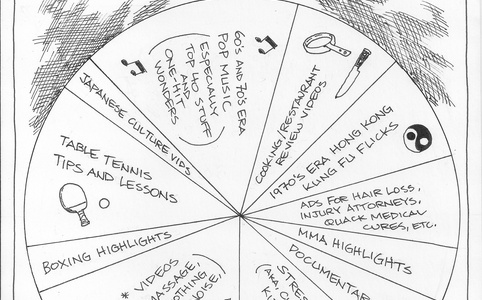 60'S AND 70'S ERA
POP MUSIC
(ESPECIALLY
TOP 40 STUFF
AND
ONE-HIT
WONDERS)
COOKING/RESTAURANT
REVIEW VIDEOS
1970'S ERA HONG KONG
KUNG FU FLICKS
ADS FOR HAIR LOSS,
INJURY ATTORNEYS,
QUACK MEDICAL
CURES, ETC.
MMA HIGHLIGHTS
DOCUMENTAR
STRES
(AKA,
* VIDEOS
MASSAGE,
OTHING
NOISE,
BOXING HIGHLIGHTS
TABLE TENNIS
TIPS AND LESSONS
JAPANESE CULTURE VIDS